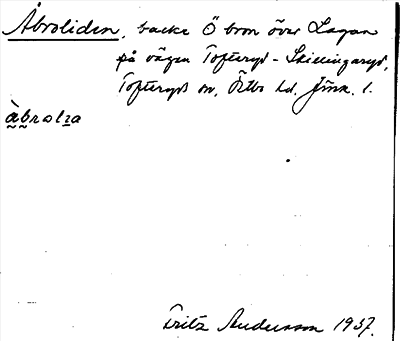 Åbroliden, backe Ö bron över Lagan
på vägen Tofteryd - Skillingaryd,
Tofteryds sn, Östbo hd, Jönk. l.
Fritz Andersson 1937.